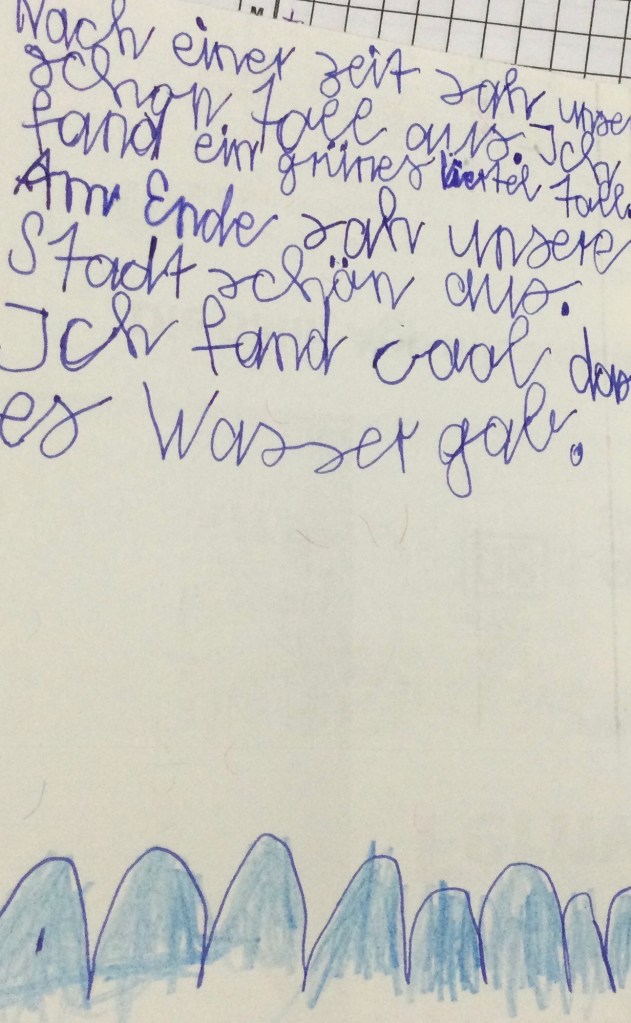 Nach einer zeit sah unse
schon tall aus. Ich
fand ein grünes viertel tall.
Am Ende sah unsere
Stadt schön aus.
Ich fand cool das
es Wasser gab.